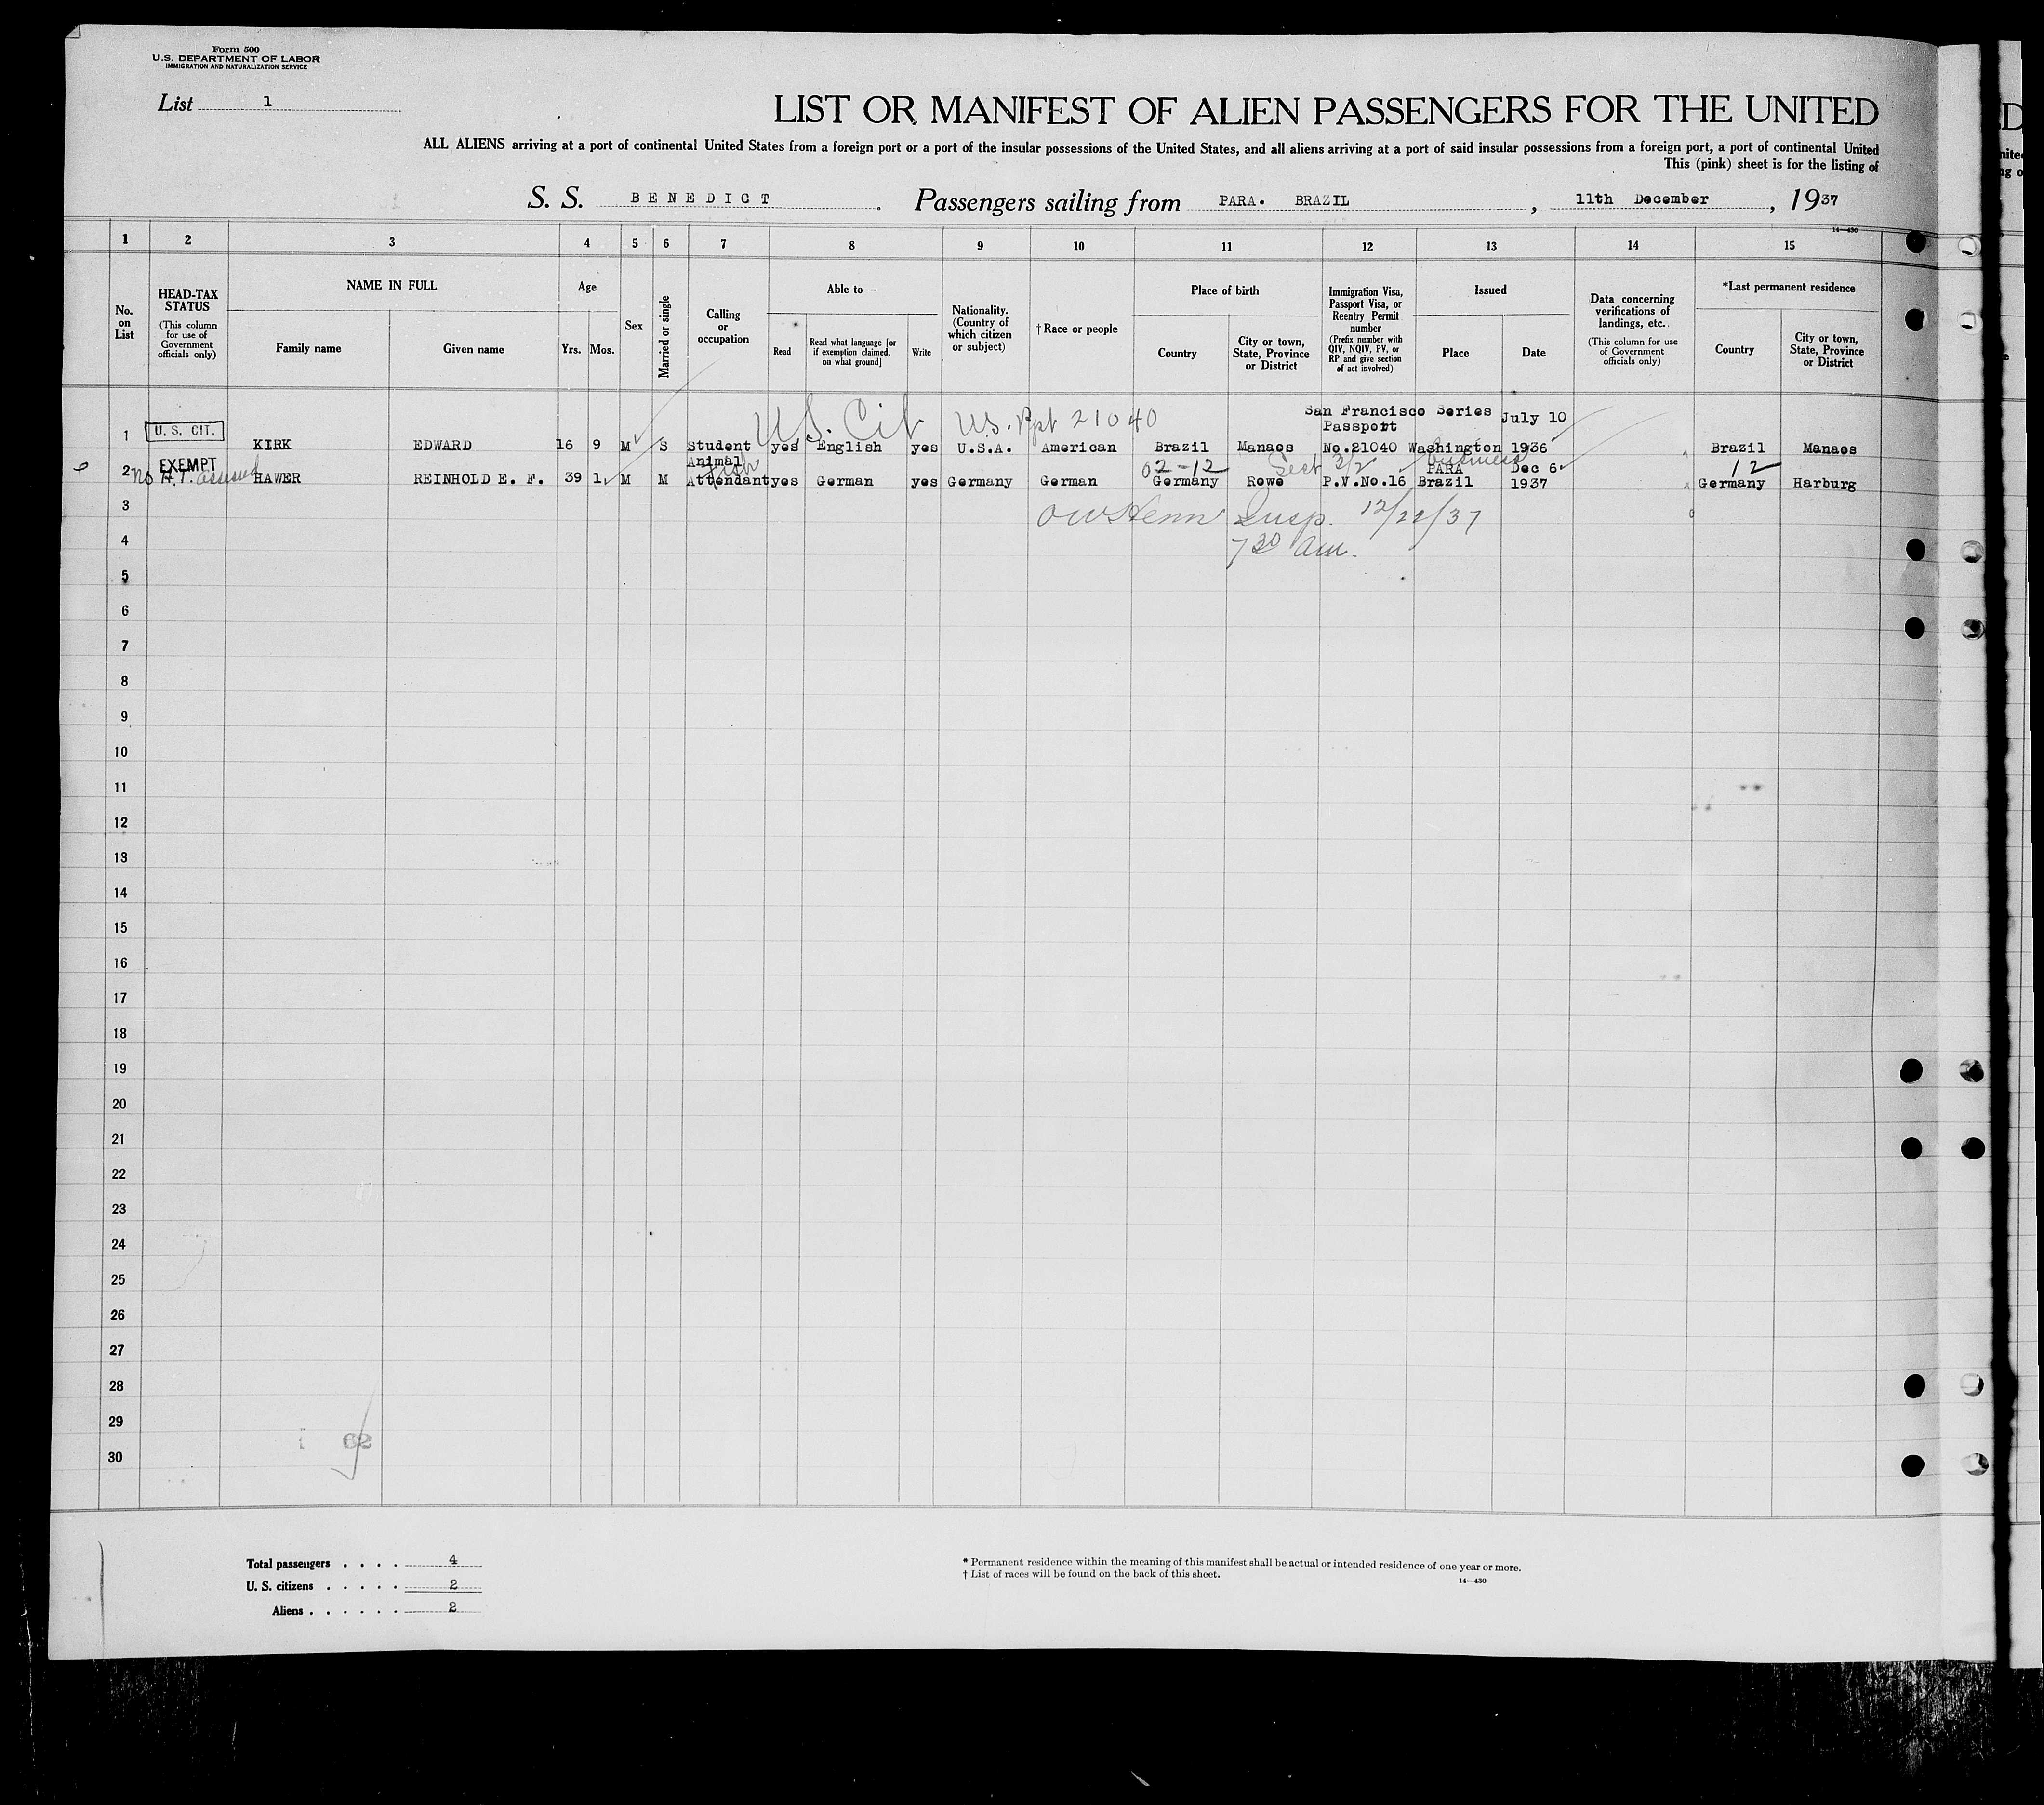 Form 500
U.S. DEPARTMENT OF LABOR
IMMIGRATION AND NATURALIZATION SERVICE
List 1
LIST OR MANIFEST OF ALIEN PASSENGERS FOR THE UNITED
ALL ALIENS arriving at a port of continental United States from a foreign port or a port of the insular possessions of the United States, and all aliens arriving at a port of said insular possessions from a foreign port, a port of continental United
This (pink) sheet is for the listing of
S. S. BENEDICT. Passengers sailing from PARA. BRAZIL, 11th December, 1937
14—430
1 2 3 4 5 6 7 8 9 10 11 12 13 14 15
No. on List
HEAD-TAX STATUS
(This column for use of Government officials only)
NAME IN FULL
Family name
Given name
Age
Yrs. Mos.
Sex
Married or single
Calling or occupation
Able to—
Read
Read what language [or if exemption claimed, on what ground]
Write
Nationality. (Country of which citizen or subject)
†Race or people
Place of birth
Country
City or town, State, Province or District
Immigration Visa, Passport Visa, or Reentry Permit number
(Prefix number with QIV, NQIV, PV, or RP and give section of act involved)
Issued
Place
Date
Data concerning verifications of landings, etc.
(This column for use of Government officials only)
*Last permanent residence
Country
City or town, State, Province or District
U.S. Cit U.S. Ppt 21040
San Francisco Series July 10
Passport
1 U. S. CIT. KIRK EDWARD 16 9 M S Student yes English yes U.S.A. American Brazil Manaos No.21040 Washington 1936 Brazil Manaos
EXEMPT Animal 02-12 Sect 3/2 business PARA Dec 6 12
2 No H.T. assessed HAWER REINHOLD E. F. 39 1 M M Attendant yes German yes Germany German Germany Rowe P.V.No.16 Brazil 1937 Germany Harburg
3 Insp. 12/22/37
4 7 30 am.
5
6
7
8
9
10
11
12
13
14
15
16
17
18
19
20
21
22
23
24
25
26
27
28
29
62
30
Total passengers . . . . 4
U. S. citizens . . . . . 2
Aliens . . . . . . 2
* Permanent residence within the meaning of this manifest shall be actual or intended residence of one year or more.
† List of races will be found on the back of this sheet.
14—430